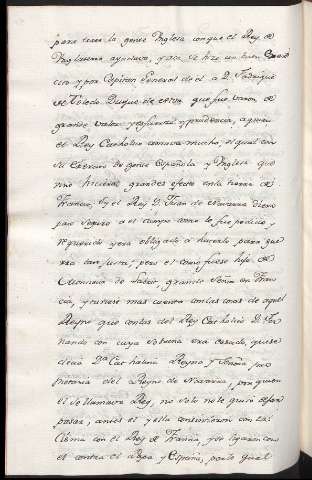 para traer la gente Inglesa con que el Rey de
Inglaterra ayudava, y aca se hizo un buen Exer
cito y por Capitan General de el a D. Fadrique
de Toledo Duque de que fue varon de
grande valor y esfuerzo y prudencia, a quien
el Rey Catholico amava mucho, el qual con
su Exercito de gente Española y Inglesa que
vino hicieran grandes efectos en la tierra de
Francia, si el Rey D. Juan de Navarra diera
paso seguro a el campo como le fue pedido y
requerido y era obligado a hacerlo para que
rra tan justa; pero el como fuese hijo de
de Labrit, grande Señor en Fran
cia, y tuviese mas cuenta con las cosas de aquel
Reyno que con las del Rey Catholico D. Fer
nando con cuya sobrina era casado, que se
decia D.ª Cathalina Reyna y Señora pro
pietaria del Reyno de Navarra, por quien
el se llamava Rey, no solo no le quiso dejar
pasar, antes el y ella consintieron en la
Cisma con el Rey de Francia, y se ligaron con
el contra el Papa y España, por lo qual